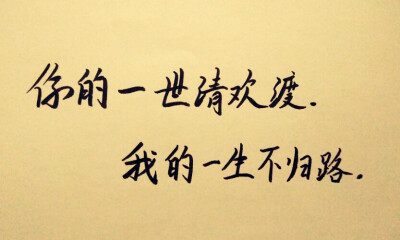 你的一世清欢渡.
我的一生不归路.